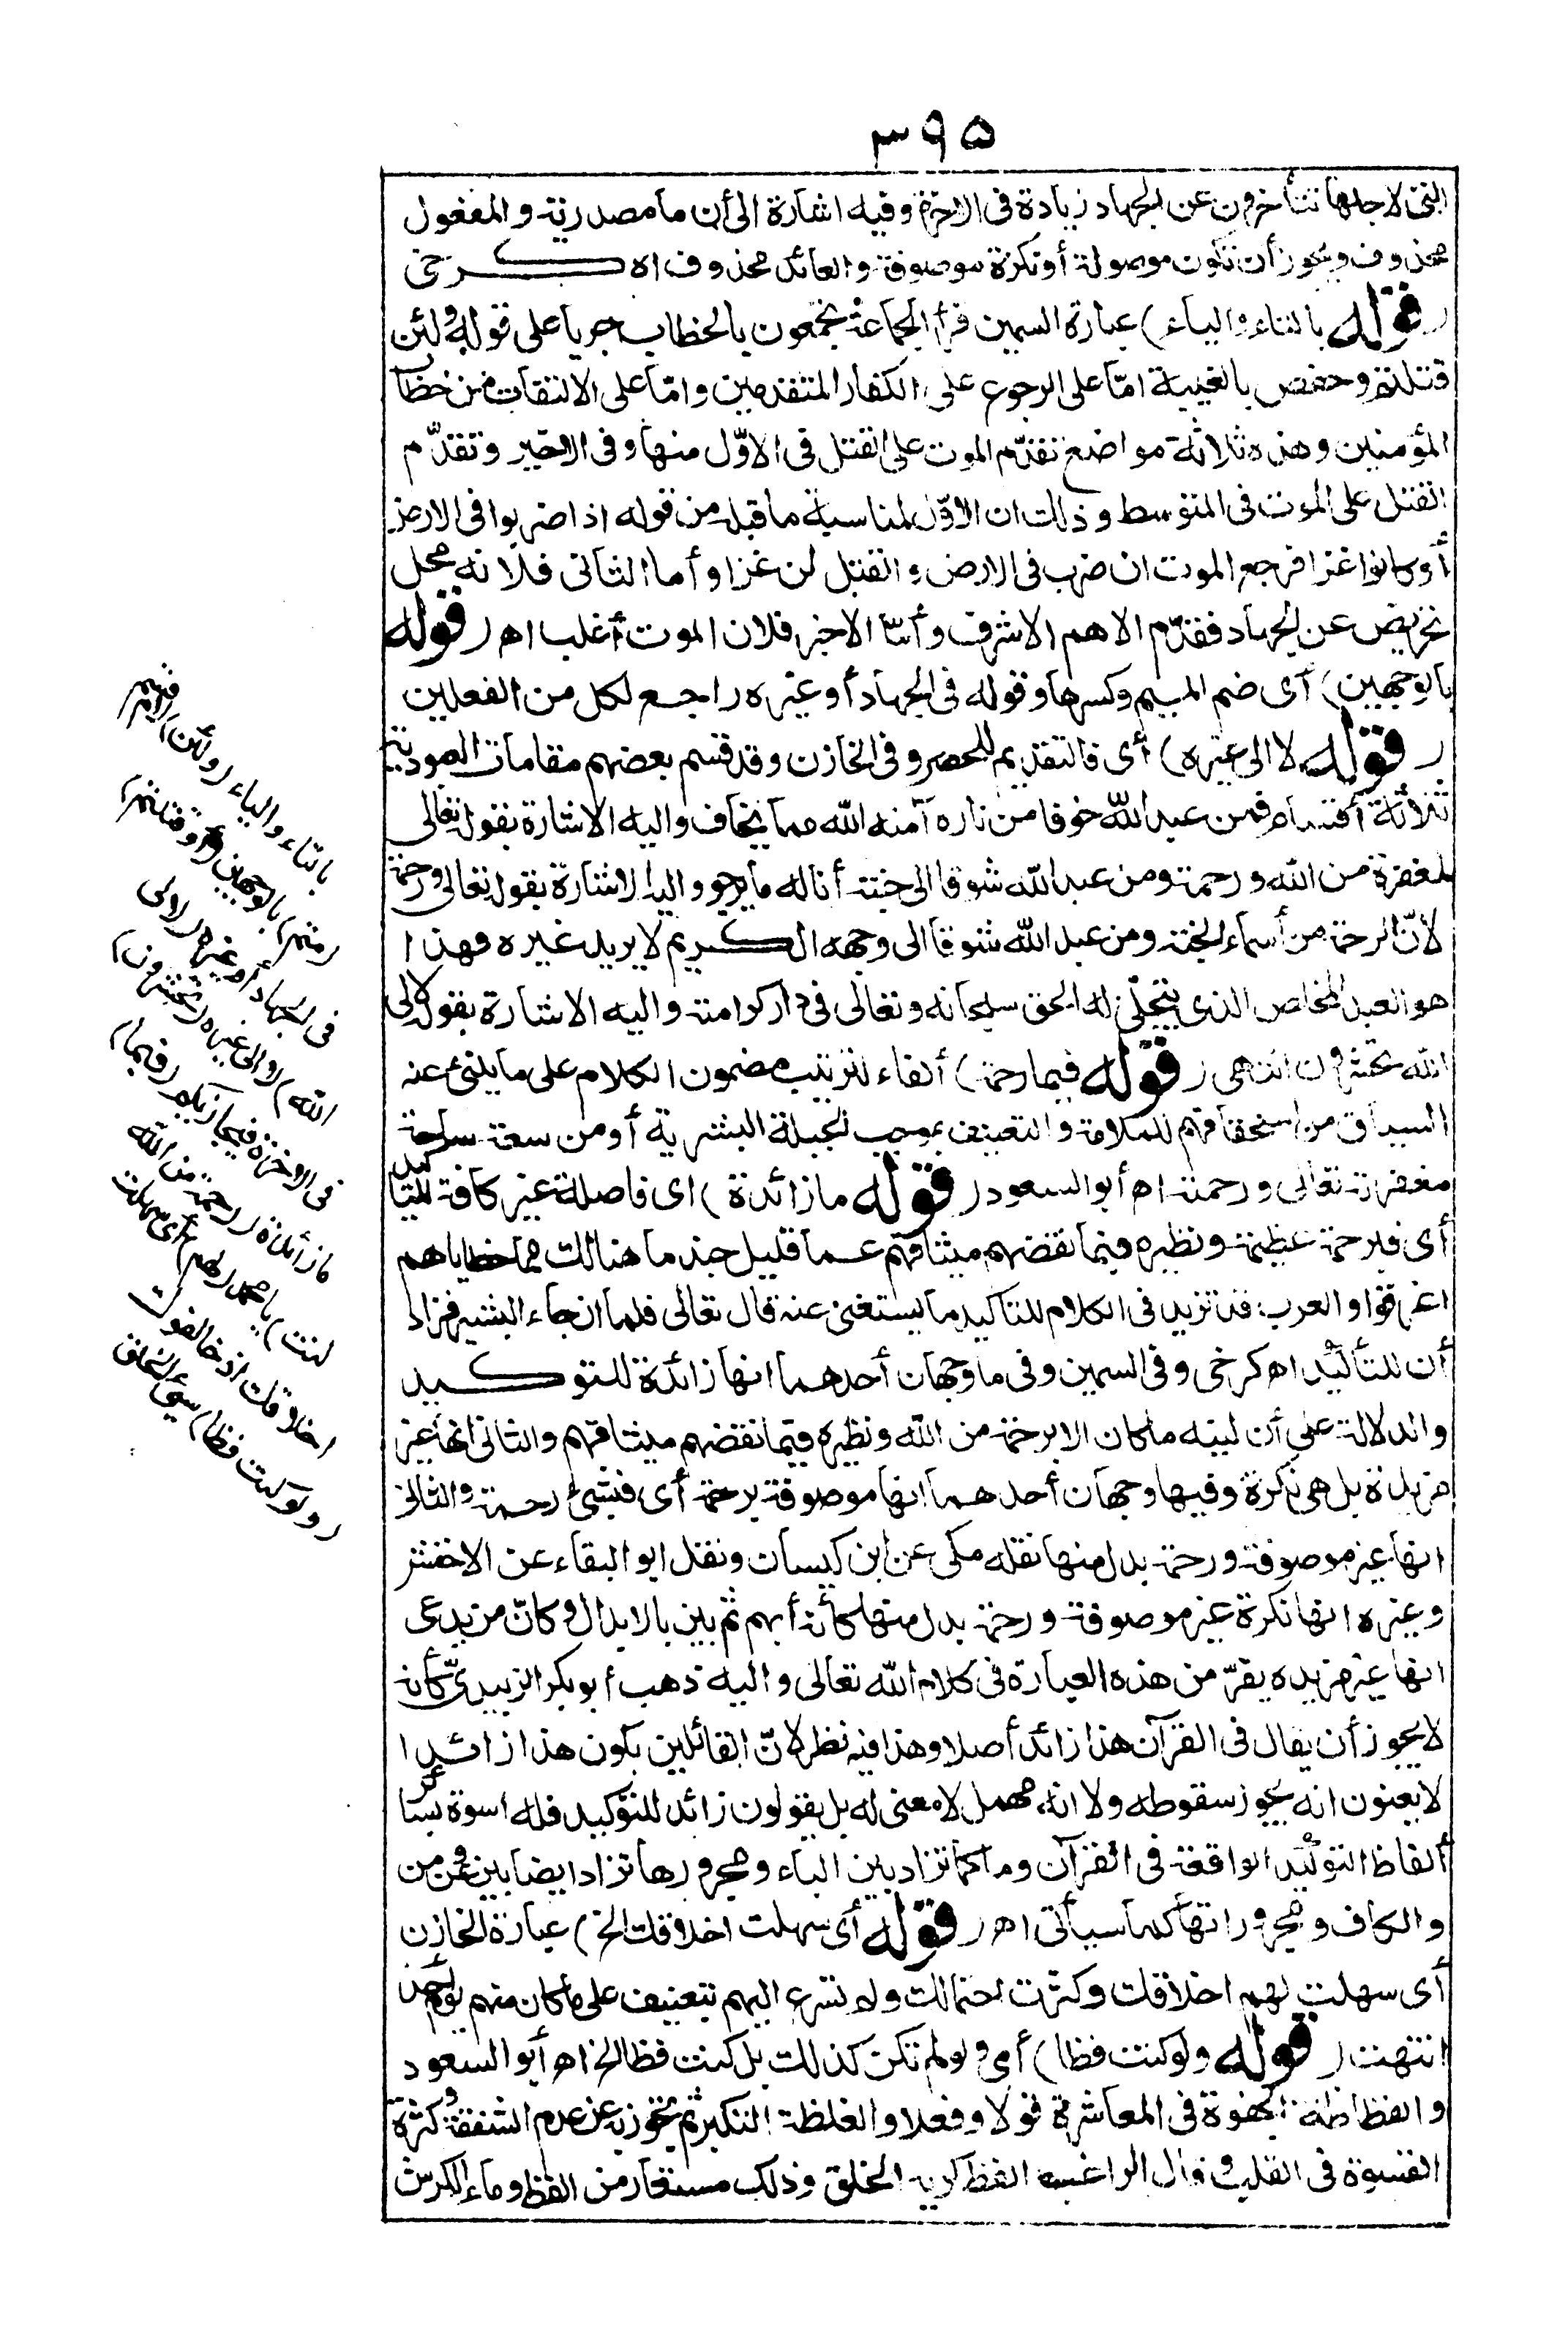 ٣٩٥
التى لاجلها تتأخرون عن الجهاد زيادة فى الاخرة وفيه اشارة الى أن ما مصدرية والمفعول
محذوف ويجوز أن تكون موصولة أو نكرة موصوفة والعائد محذوف اه كرخى
(قوله بالتاء والياء) عبارة السمين قرأ الجماعة تجمعون بالخطاب جريا على قوله ولئن
قتلتم وحفص بالغيبة امّا على الرجوع على الكفار المتقدمين وامّا على الالتفات من خطاب
المؤمنين وهذه ثلاثة مواضع تقدّم الموت على القتل فى الاوّل منها وفى الاخير وتقدّم
القتل على الموت فى المتوسط وذلك ان الاوّل لمناسبة ما قبله من قوله اذا ضربوا فى الارض
أو كانوا غزا فرجع الموت ان ضرب فى الارض والقتل لمن غزا وأما الثانى فلانه محل
تحريض عن الجهاد فقدّم الاهم الاشرف وأمّا الاخير فلان الموت أغلب اه (قوله
بالوجهين) أى ضم الميم وكسرها وقوله فى الجهاد أو غيره راجع لكل من الفعلين
(قوله لا الى غيره) أى فالتقديم للحصر وفى الخازن وقد قسم بعضهم مقامات العبودية
ثلاثة أقسام فمن عبد الله خوفا من ناره آمنه الله مما يخاف واليه الاشارة بقوله تعالى
لمغفرة من الله ورحمة ومن عبد الله شوقا الى جنته أناله ما يرجو واليه الاشارة بقوله تعالى ورحمة
لأنّ الرحمة من أسماء الجنة ومن عبد الله شوقا الى وجهه الكريم لا يريد غيره فهذا
هو العبد المخلص الذى يتجلّى له الحق سبحانه وتعالى فى دار كرامته واليه الاشارة بقوله لالى
الله تحشرون انتهى (قوله فبما رحمة) الفاء لترتيب مضمون الكلام على ما ينبئ عنه
السياق من استحقاقهم للملامة والتعنيف بموجب الجبلة البشرية أو من سعة ساحة
مغفرته تعالى ورحمته اه أبو السعود (قوله ما زائدة) اى فاصلة غير كافة للتأكيد
أى فبرحمة عظيمة ونظيره فبما نقضهم ميثاقهم عما قليل جند ما هنالك مما خطاياهم
اغرقوا والعرب قد تزيد فى الكلام للتأكيد ما يستغنى عنه قال تعالى فلما ان جاء البشير فزاد
أن للتأكيد اه كرخى وفى السمين وفى ما وجهان أحدهما انها زائدة للتوكيد
والدلالة على أن لينه ما كان الا برحمة من الله ونظيره فبما نقضهم ميثاقهم والثانى انها غير
مزيدة بل هى نكرة وفيها وجهان أحدهما انها موصوفة برحمة أى فبشئ رحمة والثانى
انها غير موصوفة ورحمة بدل منها نقله مكى عن ابن كيسان ونقل ابو البقاء عن الاخفش
وغيره انها نكرة غير موصوفة ورحمة بدل منها كأنه أبهم ثم بين بالابدال وكانّ من يدعى
انها غير مزيده يفرّ من هذه العبارة فى كلام الله تعالى واليه ذهب أبو بكر الزبيدىّ كأنه
لا يجوز أن يقال فى القرآن هذا زائد أصلا وهذا فيه نظر لانّ القائلين بكون هذا زائدا
لا يعنون انه يجوز سقوطه ولا انه مهمل لا معنى له بل يقولون زائد للتوكيد فله اسوة بسائر
ألفاظ التوكيد الواقعة فى القرآن وما كما تزاد بين الباء ومجرورها تزاد ايضا بين عن ومن
والكاف ومجروراتها كما سيأتى اه (قوله أى سهلت اخلاقك الخ) عبارة الخازن
أى سهلت لهم اخلاقك وكثرت احتمالك ولم تسرع اليهم بتعنيف على ما كان منهم يوم أحد
انتهت (قوله ولو كنت فظا) أى ولو لم تكن كذلك بل كنت فظا الخ اه أبو السعود
والفظاظة الجفوة فى المعاشرة قولا وفعلا والغلظة التكبر ثم تجوز به عن عدم الشفقة وكثرة
القسوة فى القلب وقال الراغب الفظ كريه الخلق وذلك مستعار من الفظ وماء الكرش
بالتاء والياء (ولئن)
(متم) بالوجهين (أو قتلتم)
فى الجهاد أو غيره (لالى
الله) لا الى غيره (تحشرون)
فى الاخرة فيجازيكم (فبما)
ما زائدة (رحمة من الله
لنت) يا محمد (لهم) أى سهلت
اخلاقك اذ خالفوك
(ولو كنت فظا) سيئ الخلق